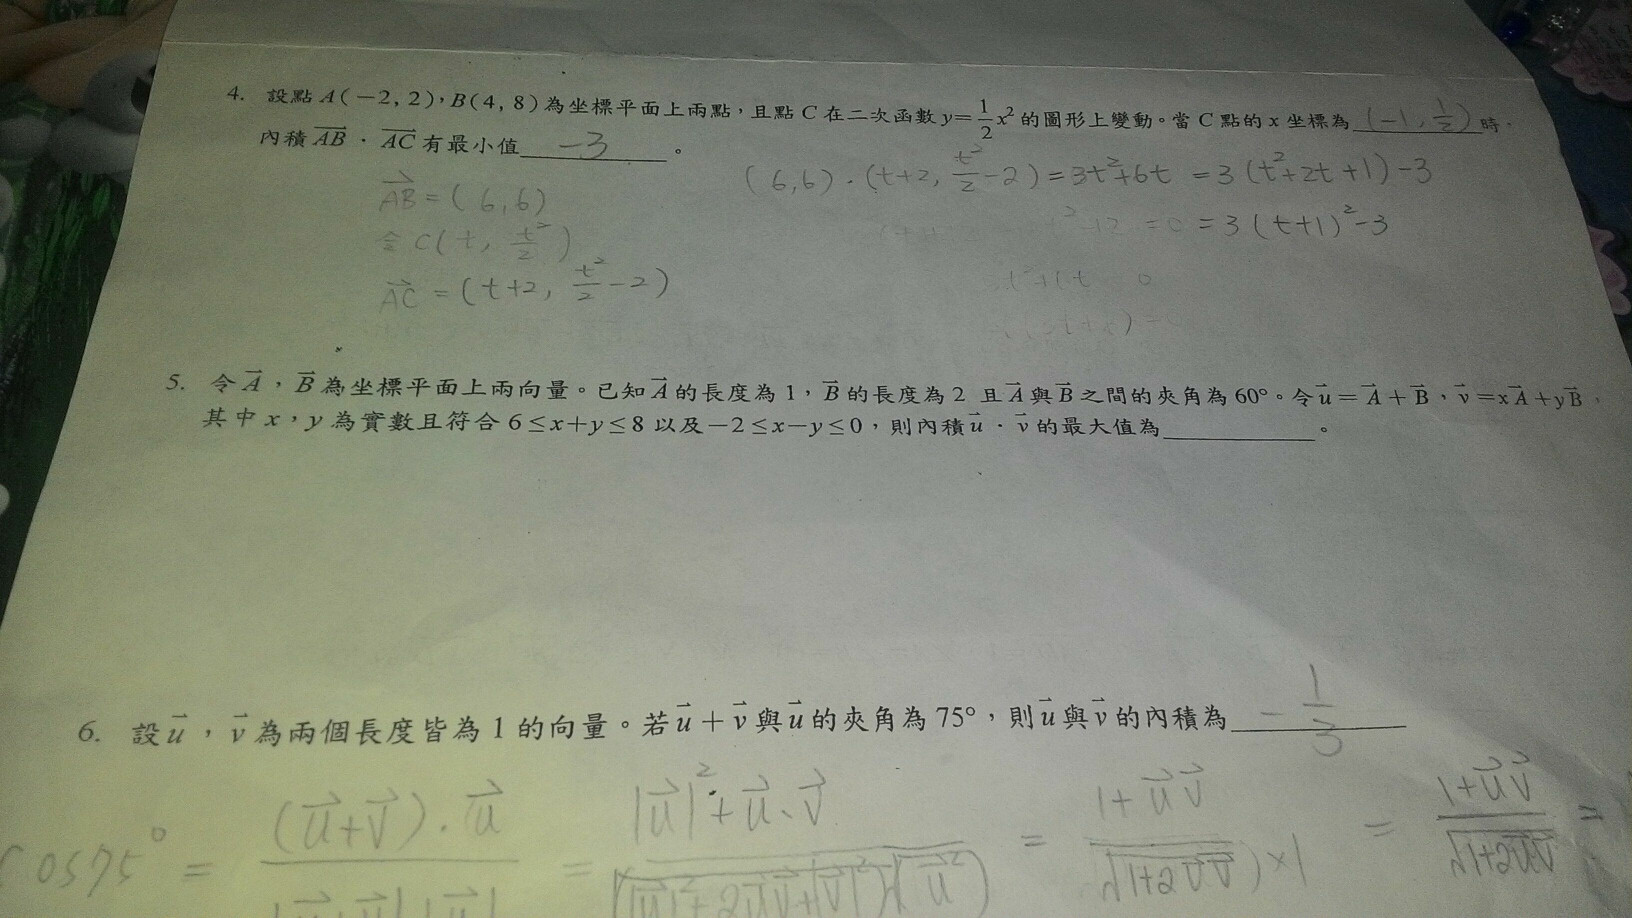 4. 設點 A(−2, 2)，B(4, 8)為坐標平面上兩點，且點 C 在二次函數 y=\frac{1}{2}x² 的圖形上變動。當 C 點的 x 坐標為 (-1, \frac{1}{2}) 時，
內積 \overrightarrow{AB} · \overrightarrow{AC} 有最小值 -3 。
(6,6)·(t+2, \frac{t²}{2}-2)=3t²+6t =3(t²+2t+1)-3
\overrightarrow{AB}=(6,6)
=3(t+1)²-3
令 C(t, \frac{t²}{2})
\overrightarrow{AC}=(t+2, \frac{t²}{2}-2)
5. 令 \vec{A}，\vec{B} 為坐標平面上兩向量。已知 \vec{A} 的長度為 1，\vec{B} 的長度為 2 且 \vec{A} 與 \vec{B} 之間的夾角為 60°。令 \vec{u}=\vec{A}+\vec{B}，\vec{v}=x\vec{A}+y\vec{B}，
其中 x，y 為實數且符合 6≤x+y≤8 以及 −2≤x−y≤0，則內積 \vec{u}·\vec{v} 的最大值為 。
6. 設 \vec{u}，\vec{v} 為兩個長度皆為 1 的向量。若 \vec{u}+\vec{v} 與 \vec{u} 的夾角為 75°，則 \vec{u} 與 \vec{v} 的內積為 -\frac{1}{3}
cos75° = \frac{(\vec{u}+\vec{v})·\vec{u}}{|\vec{u}+\vec{v}||\vec{u}|} = \frac{|\vec{u}|²+\vec{u}·\vec{v}}{\sqrt{(|\vec{u}|²+2\vec{u}\vec{v}+|\vec{v}|²)}(\sqrt{\vec{u}²})} = \frac{1+\vec{u}\vec{v}}{\sqrt{1+2\vec{v}\vec{v}})×1} = \frac{1+\vec{u}\vec{v}}{\sqrt{1+2\vec{u}\vec{v}}} =